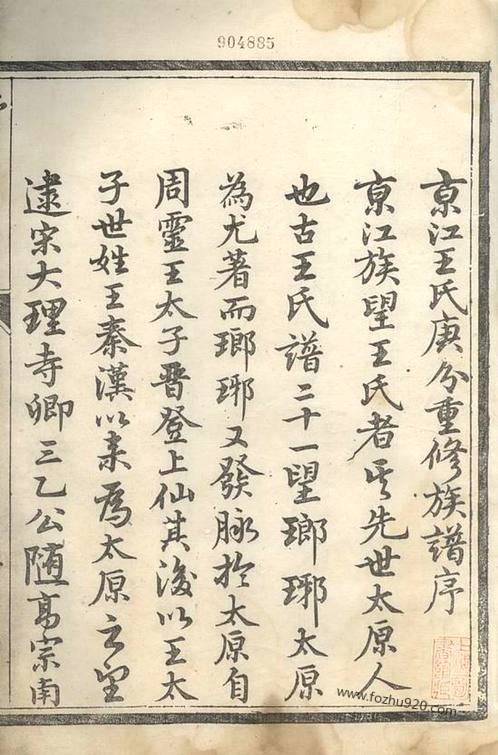 904885
京江王氏庚分重修族譜序
京江族望王氏者其先世太原人
也古王氏譜二十一望瑯琊太原
為尤著而瑯琊又發脉於太原自
周靈王太子晋登上仙其後以王太
子世姓王秦漢以来為太原之望
逮宋大理寺卿三乙公随高宗南
www.fozhu920.com